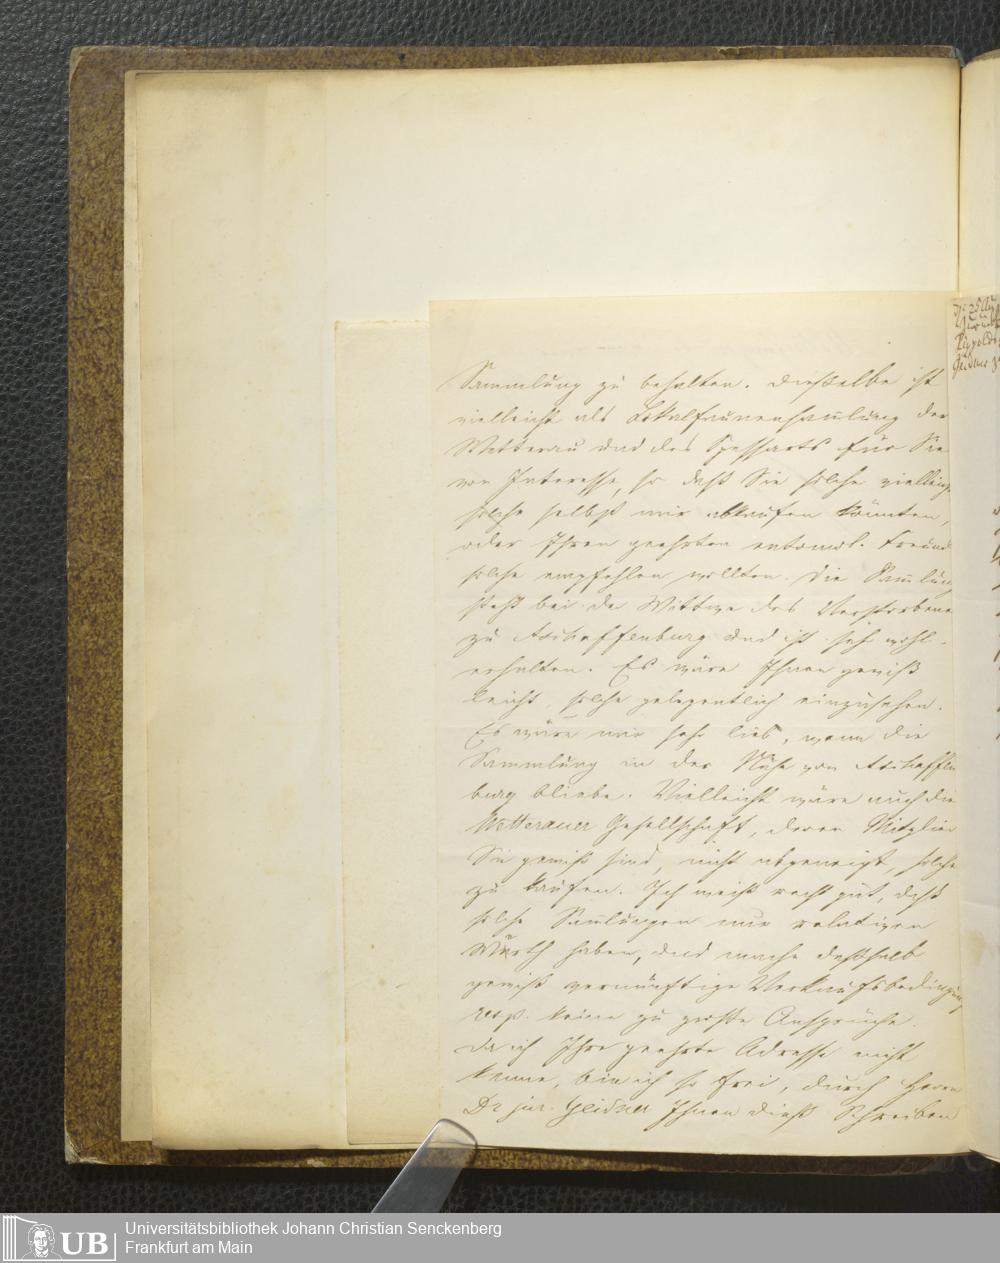 Sammlung zu behalten. Dieselbe ist
vielleicht als Lokalfaunensammlung der
Wetterau und des Spessarts für Sie
von Interesse, so daß Sie solche
solche selbst mir abkaufen könnten,
oder Ihren geehrten entomol. Freund
solche empfehlen wollten. Die Sam̄lung
steht bei de Wittwe des Verstorbene
zu Aschaffenburg und ist sehr wohl-
erhalten. Es wäre Ihnen gewiß
leicht, solche gelegentlich einzusehen.
Es wäre mir sehr lieb, wenn die
Sammlung in der Nähe von Aschaffen
burg bliebe. Vielleicht wäre auch die
Wetterauer Gesellschaft, deren Mitglied
Sie gewiß sind, nicht abgeneigt, solche
zu kaufen. Ich weiß recht gut, daß
solche Sam̄lungen nur relativen
Werth haben, und mache deßhalb
gewiß vernünftige Verkaufsbedingung
resp. keine zu große Ansprüche.
Da ich Ihre geehrte Adresse nicht
kenne, bin ich so frei, durch Herrn
Dr jur. Ihnen dieß Schreiben
UB
Universitätsbibliothek Johann Christian Senckenberg
Frankfurt am Main